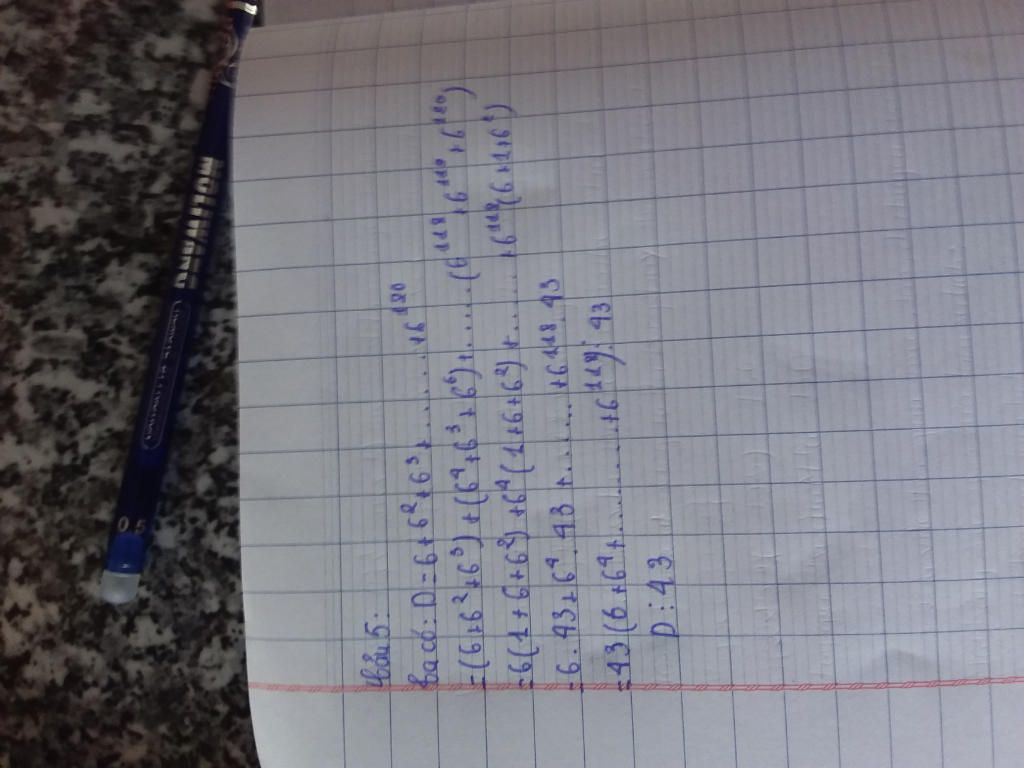 Câu 5:
Ta có: D = 6 + 6² + 6³ + ........ + 6¹²⁰
= (6 + 6² + 6³) + (6⁴ + 6³ + 6⁶) + ...... (6¹¹⁸ + 6¹¹⁹ + 6¹²⁰)
= 6(1 + 6 + 6²) + 6⁴(1 + 6 + 6²) + ...... + 6¹¹⁸(6 + 1 + 6²)
= 6 . 43 + 6⁴ . 43 + ........ + 6118 . 43
= 43 (6 + 6⁴ + ........ + 6 119) ⋮ 43
D ⋮ 43
0.5